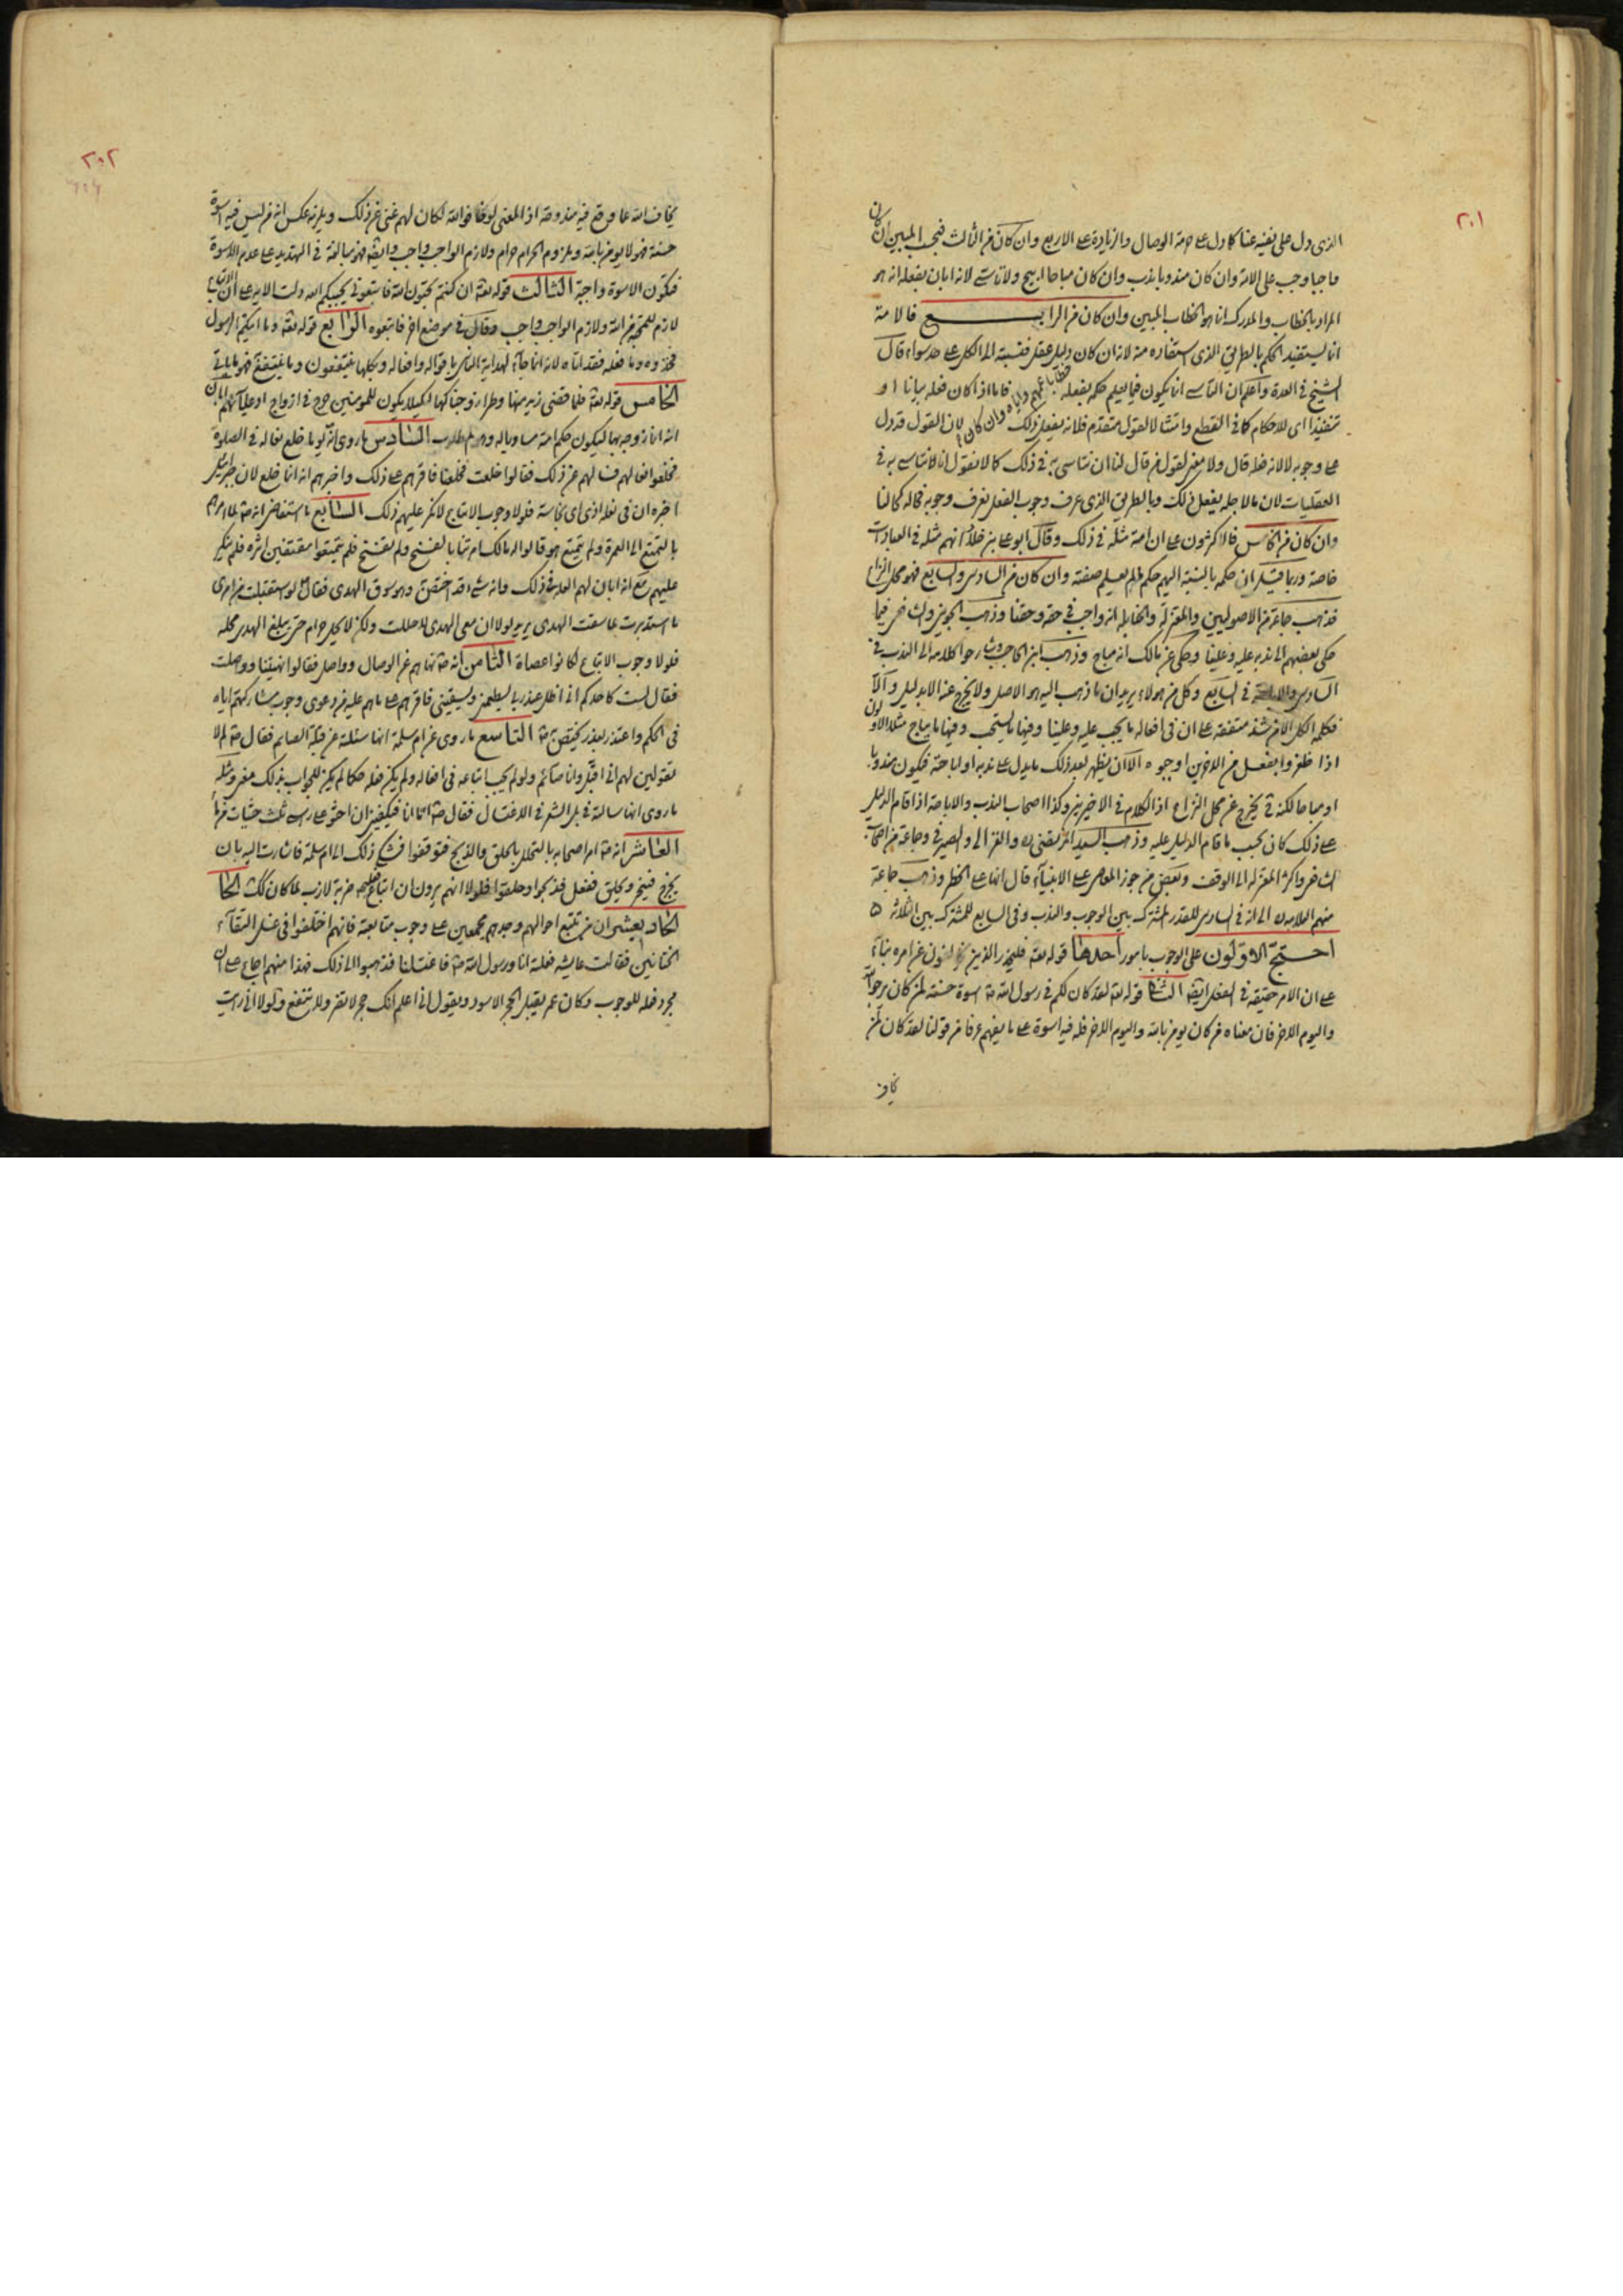 ٢٠١
الذى دل على نفيه عنا كما دل على حرمة الوصال والزيادة على الاربع وان كان من الثالث فيجب المبين ان كان
واجبا وجب على الامة وان كان مندوبا ندب وان كان مباحا ابيح ولا تأسى لانه ابان بفعله انه هو
المراد بالخطاب والمدرك انما هو الخطاب المبين وان كان من الرابع فالامة
انما يستفيد الحكم بالطريق الذى استفاده منه لانه ان كان دليل عقل فنسبته الى الكل على حد سواء قال
الشيخ فى العدة واعلم ان التأسى انما يكون فيما يعلم حكمه بفعله فاما اذا كان فعله بيانا او
تنفيذا اى للاحكام كما فى القطع وامتثالا لقول متقدم فلانه يفعل ذلك وان كان لان القول قد دل
على وجوبه لا لانه فعله قال ولا معنى لقول من قال لنا ان نتأسى به فى ذلك كما لا نقول انا لا نتأسى به فى
العقليات لان ما لاجله يفعل ذلك وبالطريق الذى عرف وجوب الفعل نعرف وجوبه فحاله كحالنا
وان كان من الخامس فالاكثرون على ان امته مثله فى ذلك وقال ابو على بن خلاد انهم مثله فى العبادات
خاصة وربما قيل ان حكمه بالنسبة اليهم حكم ما لم يعلم صفته وان كان من السادس والسابع فهو محل النزاع
فذهب جماعة من الاصوليين والمعتزلة والحنابلة انه واجب فى حقه وحقنا وذهب الجوينى والشافعى فيما
حكى بعضهم الى ندبه عليه وعلينا وحكى عن مالك انه مباح وذهب ابن الحاجب وشارحوا كلامه الى الندب فى
السادس والاباحة فى السابع وكل من هولاء يريد ان ما ذهب اليه هو الاصل ولا يخرج عنه الا بدليل والا
فكلمة الكل الا من شذ متفقة على ان فى افعاله ما يجب عليه وعلينا وفيها ما يستحب وفيها ما يباح مثلا الاولون
اذا ظفروا بفعل من الاخيرين اوجبوه الا ان يظهر بعد ذلك ما يدل على ندبه او اباحته فيكون مندوبا
او مباحا لكنه ح يخرج عن محل النزاع اذ الكلام فى الاخيرين وكذا اصحاب الندب والاباحة اذا قام الدليل
على ذلك كان بحسب ما قام الدليل عليه وذهب السيد المرتضى ره والغزالى والصيرفى وجماعة من اصحاب
الشافعى واكثر المعتزلة الى الوقف وبعض من جوز المعاصى على الانبياء قال انها على الحظر وذهب جماعة
منهم العلامة ره الى انه فى السادس للقدر المشترك بين الوجوب والندب وفى السابع للمشترك بين الثلاثة
احتج الاولون على الوجوب بامور احدها قوله تعالى فليحذر الذين يخالفون عن امره بناء
على ان الامر حقيقة فى الفعل ايضا الثانى قوله تعالى لقد كان لكم فى رسول الله اسوة حسنة لمن كان يرجوا الله
واليوم الاخر فان معناه من كان يؤمن بالله واليوم الاخر فله فيه اسوة على ما يفهم عرفا من قولنا لقد كان لمن
٢٠٢
يخاف الله عما وقع فيه مندوحة اذ المعنى لو خافوا الله لكان لهم غنى عن ذلك ويلزمه عكس انه من ليس فيه اسوة
حسنة فهو لا يومن بالله وملزوم الحرام حرام ولازم الواجب واجب وايضا فهو مبالغة فى التهديد على عدم الاسوة
فتكون الاسوة واجبة الثالث قوله تعالى ان كنتم تحبون الله فاتبعونى يحببكم الله دلت الاية على ان الاتباع
لازم للمحبة من الله ولازم الواجب واجب وقال فى موضع اخر فاتبعوه الرابع قوله تعالى وما اتيكم الرسول
فخذوه وما فعله فقد اتاه لانه انما جاء لهداية الناس باقواله وافعاله وبكلها ينتفعون وما ينتفع به فهو مما يأتى
الخامس قوله تعالى فلما قضى زيد منها وطرا زوجناكها لكيلا يكون للمومنين حرج فى ازواج ادعيائهم ابان
انه انما زوجه بها ليكون حكم امته مساويا له وهو المطلوب السادس ما روى انه لو ما خلع نعاله فى الصلوة
فخلعوا نعالهم فسالهم عن ذلك فقالوا خلعت فخلعنا فاقرهم على ذلك واخبرهم انه انما خلع لان جبرئيل
اخبره ان فى نعله اذى اى نجاسة فلولا وجوب الاتباع لانكر عليهم ذلك السابع ما استفاض انه لما امرهم
بالتمتع الى العمرة ولم يتمتع هو قالوا له ما لك امرتنا بالفسخ ولم تفسخ فلم يتمتعوا مقتفين اثره فلم ينكر
عليهم مع انه ابان لهم العلة فى ذلك وانه شىء قد اختص به وهو سوق الهدى فقال لو استقبلت من امرى
ما استدبرت لما سقت الهدى يريد لولا ان معى الهدى لاحللت ولكن لا يحل حرام حتى يبلغ الهدى محله
فلولا وجوب الاتباع لكانوا عصاة الثامن انه نهاهم عن الوصال وواصل فقالوا نهيتنا وواصلت
فقال لست كاحدكم انى اظل عند ربى يطعمنى ويسقينى فاقرهم على ما هم عليه من دعوى وجوب مشاركتهم اياه
فى الحكم واعتذر بعذر يختص به التاسع ما روى عن ام سلمة انها سئلته عن قبلة الصائم فقال لم لا
تقولين لهم انى اقبل وانا صائم ولو لم يجب اتباعه فى افعاله ولم يكن فعله حكما لم يكن للجواب بذلك معنى ومثله
ما روى انها سالته فى بل الشعر فى الاغتسال فقال اما انا فيكفينى ان احثو على راسى ثلث حثيات من ماء
العاشر انه امر اصحابه بالتحلل بالحلق والذبح فتوقفوا فشكى ذلك الى ام سلمة فاشارت اليه بان
يخرج فينحر ويحلق ففعل فذبحوا وحلقوا فلولا انهم يرون ان اتباع فعله ضربة لازب لما كان ذلك
الحادى عشر ان من تتبع احوالهم وجدهم مجمعين على وجوب متابعته فانهم اختلفوا فى غسل التقاء
الختانين فقالت عايشة فعلته انا ورسول الله فاغتسلنا فذهبوا الى ذلك فهذا منهم اجماع على ان
مجرد فعله للوجوب وكان عمر يقبل الحجر الاسود ويقول انى اعلم انك حجر لا تضر ولا تنفع ولولا انى رايت